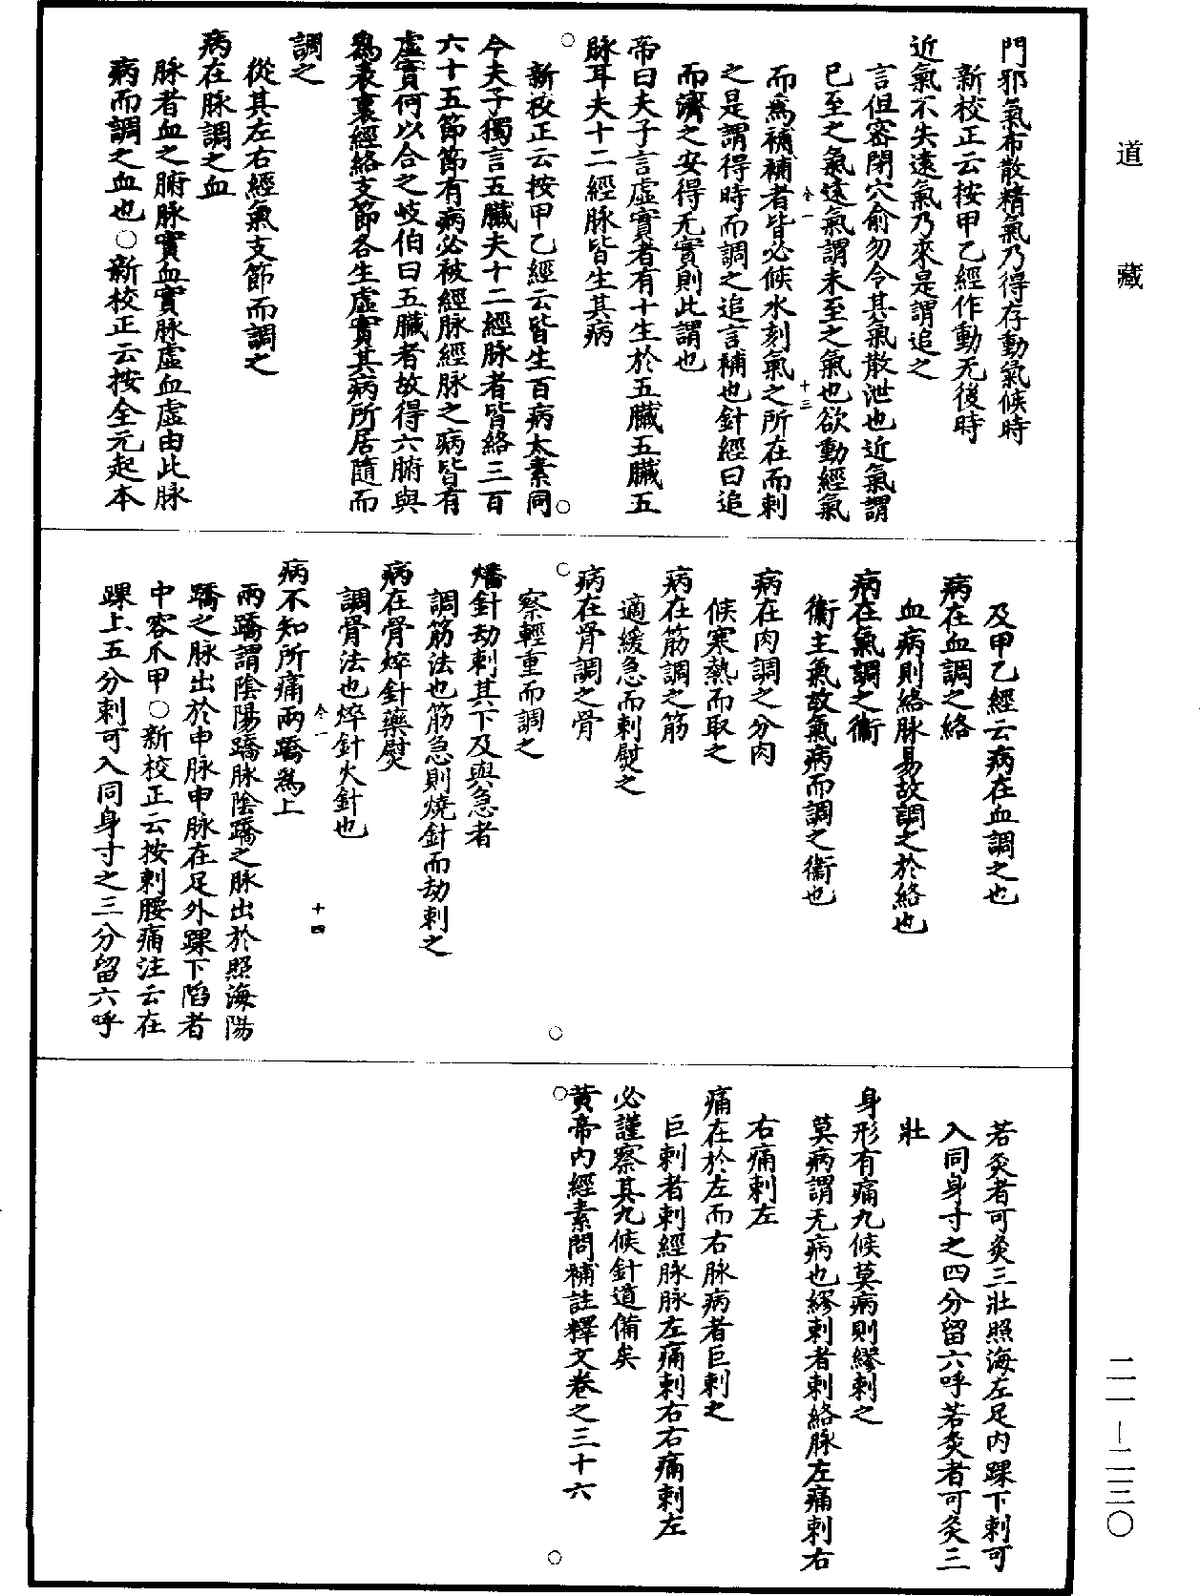 道藏
門邪氣布散精氣乃得存動氣候時
新校正云按甲乙經作動无後時
近氣不失遠氣乃來是謂追之
言但密閉穴俞勿令其氣散泄也近氣謂
已至之氣遠氣謂未至之氣也欲動經氣
而為補補者皆必候水刻氣之所在而刺
之是謂得時而調之追言補也針經曰追
而濟之安得无實則此謂也
帝曰夫子言虛實者有十生於五臟五臟五
脉耳夫十二經脉皆生其病
新校正云按甲乙經云皆生百病太素同
今夫子獨言五臟夫十二經脉者皆絡三百
六十五節節有病必被經脉經脉之病皆有
虛實何以合之岐伯曰五臟者故得六腑與
為表裏經絡支節各生虛實其病所居隨而
調之
從其左右經氣支節而調之
病在脉調之血
脉者血之腑脉實血實脉虛血虛由此脉
病而調之血也○新校正云按全元起本
及甲乙經云病在血調之也
病在血調之絡
血病則絡脉易故調之於絡也
病在氣調之衞
衞主氣故氣病而調之衞也
病在肉調之分肉
候寒熱而取之
病在筋調之筋
適緩急而刺熨之
病在骨調之骨
察輕重而調之
燔針劫刺其下及與急者
調筋法也筋急則燒針而劫刺之
病在骨焠針藥熨
調骨法也焠針火針也
病不知所痛兩蹻為上
兩蹻謂陰陽蹻脉陰蹻之脉出於照海陽
蹻之脉出於申脉申脉在足外踝下陷者
中容爪甲○新校正云按刺腰痛注云在
踝上五分刺可入同身寸之三分留六呼
若灸者可灸三壯照海在足內踝下刺可
入同身寸之四分留六呼若灸者可灸三
壯
身形有痛九候莫病則繆刺之
莫病謂无病也繆刺者刺絡脉左痛刺右
右痛刺左
痛在於左而右脉病者巨刺之
巨刺者刺經脉脉左痛刺右右痛刺左
必謹察其九候針道備矣
黄帝內經素問補註釋文卷之三十六
二一—二三〇
十三
十四